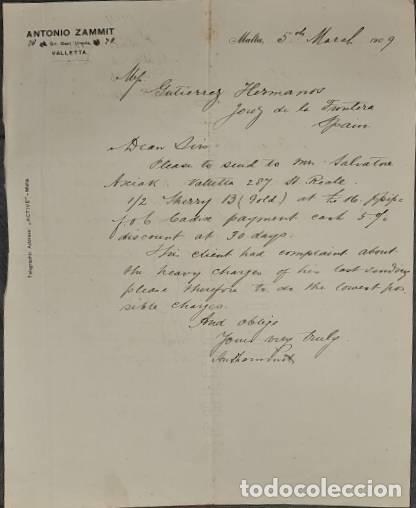 ANTONIO ZAMMIT
VALLETTA.
Malta, 5th March 1909
Gutierrez Hermanos
Jerez de la Frontera
Spain
Dear Sirs
Please to send to Mr. Salvatore
Axiak Valletta 287 St. Paole
1/2 Sherry B (Gold) at
f o b Cadix payment cash 5%
discount at 30 days.
This client had complaint about
the heavy charges of his last sending
please therefore to do the lowest pos
sible charges.
And oblige
Yours very truly
Telegraphic Address: "ACTIVE"-Malta
todocoleccion.net